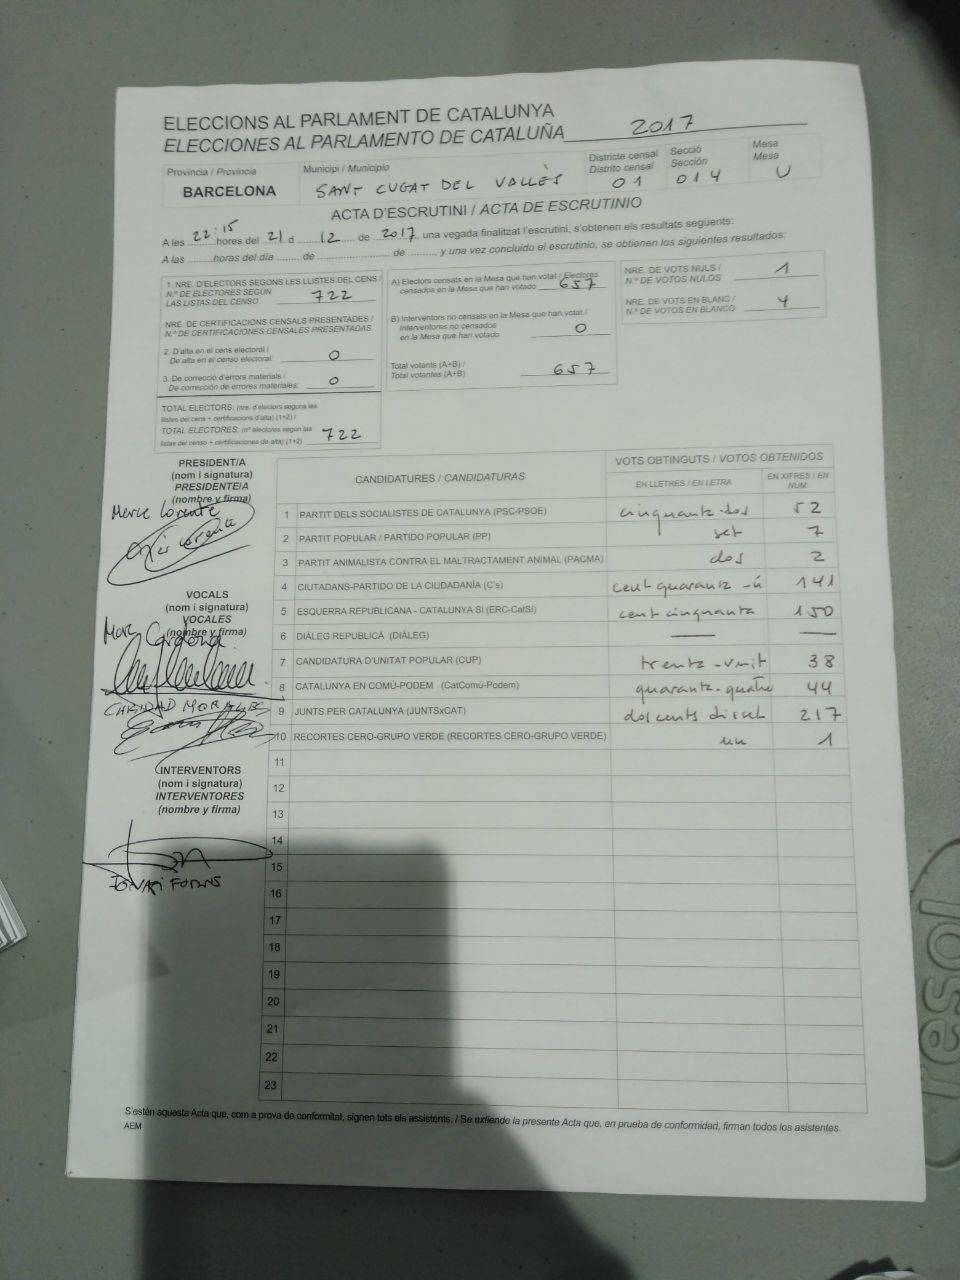 ELECCIONS AL PARLAMENT DE CATALUNYA
ELECCIONES AL PARLAMENTO DE CATALUÑA 2017
Província / Provincia
BARCELONA
Municipi / Municipio
SANT CUGAT DEL VALLÈS
Districte censal
Distrito censal
01
Secció
Sección
014
Mesa
Mesa
U
ACTA D'ESCRUTINI / ACTA DE ESCRUTINIO
A les 22:15 hores del 21 d 12 de 2017, una vegada finalitzat l'escrutini, s'obtenen els resultats següents:
A las ........ horas del día ........ de ........................ de ........, y una vez concluido el escrutinio, se obtienen los siguientes resultados:
1. NRE. D'ELECTORS SEGONS LES LLISTES DEL CENS /
N.º DE ELECTORES SEGÚN
LAS LISTAS DEL CENSO 722
NRE. DE CERTIFICACIONS CENSALS PRESENTADES /
N.º DE CERTIFICACIONES CENSALES PRESENTADAS
2. D'alta en el cens electoral /
De alta en el censo electoral: 0
3. De correcció d'errors materials /
De corrección de errores materiales: 0
TOTAL ELECTORS: (nre. d'electors segons les
llistes del cens + certificacions d'alta) (1+2) /
TOTAL ELECTORES: (nº electores según las
listas del censo + certificaciones de alta) (1+2) 722
A) Electors censats en la Mesa que han votat / Electores
censados en la Mesa que han votado 657
B) Interventors no censats en la Mesa que han votat /
Interventores no censados
en la Mesa que han votado 0
Total votants (A+B) /
Total votantes (A+B) 657
NRE. DE VOTS NULS /
N.º DE VOTOS NULOS 1
NRE. DE VOTS EN BLANC /
N.º DE VOTOS EN BLANCO 4
PRESIDENT/A
(nom i signatura)
PRESIDENTE/A
(nombre y firma)
Merce Lorente
VOCALS
(nom i signatura)
VOCALES
(nombre y firma)
Marc Cardona
CARIDAD MORALES
INTERVENTORS
(nom i signatura)
INTERVENTORES
(nombre y firma)
CANDIDATURES / CANDIDATURAS
VOTS OBTINGUTS / VOTOS OBTENIDOS
EN LLETRES / EN LETRA
EN XIFRES / EN NÚM.
1 PARTIT DELS SOCIALISTES DE CATALUNYA (PSC-PSOE) cinquanta-dos 52
2 PARTIT POPULAR / PARTIDO POPULAR (PP) set 7
3 PARTIT ANIMALISTA CONTRA EL MALTRACTAMENT ANIMAL (PACMA) dos 2
4 CIUTADANS-PARTIDO DE LA CIUDADANÍA (C's) cent quaranta-ú 141
5 ESQUERRA REPUBLICANA - CATALUNYA SI (ERC-CatSí) cent cinquanta 150
6 DIÀLEG REPUBLICÀ (DIÀLEG) — —
7 CANDIDATURA D'UNITAT POPULAR (CUP) trenta-vuit 38
8 CATALUNYA EN COMÚ-PODEM (CatComú-Podem) quaranta-quatre 44
9 JUNTS PER CATALUNYA (JUNTSxCAT) doscents disset 217
10 RECORTES CERO-GRUPO VERDE (RECORTES CERO-GRUPO VERDE) un 1
11
12
13
14
15
16
17
18
19
20
21
22
23
S'estén aquesta Acta que, com a prova de conformitat, signen tots els assistents. / Se extiende la presente Acta que, en prueba de conformidad, firman todos los asistentes.
AEM
resol